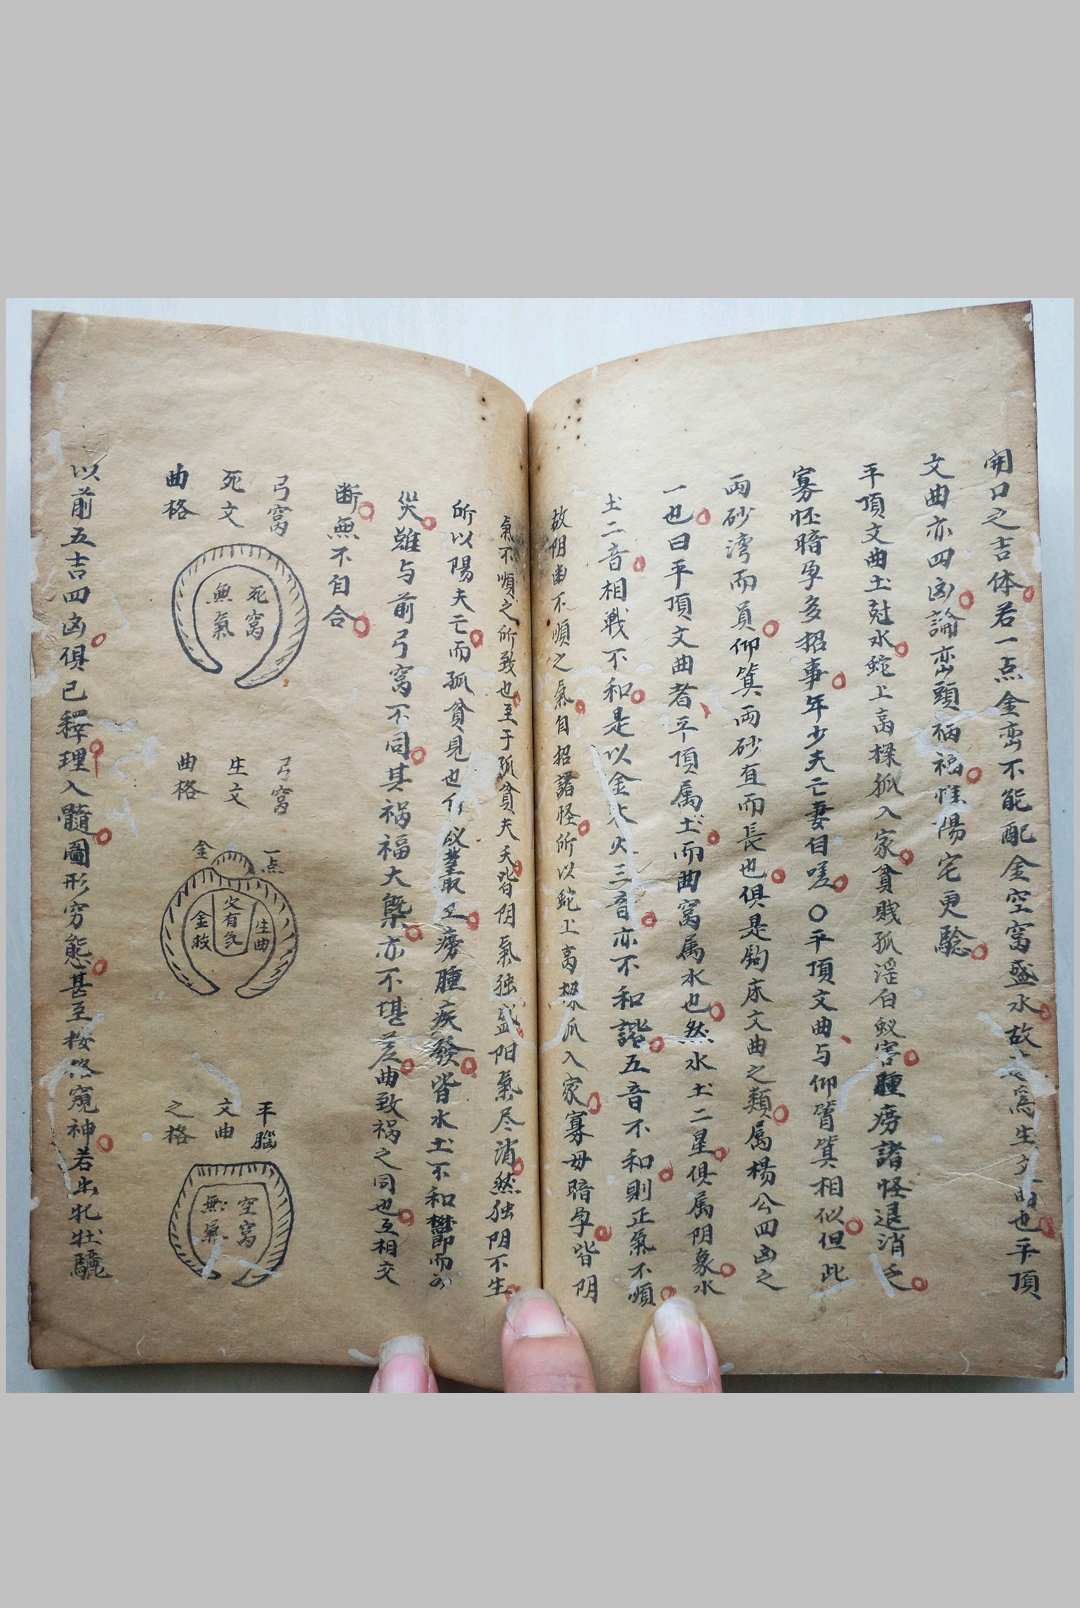 開口之吉体若一点金巒不能配金空窩盛水故之為生文曲也平頂
文曲亦四凶論巒頭禍福惟陽宅更驗
平頂文曲土尅水蛇上高樑孤入家貧賎孤滛白蟻害腫痨諸怪退消乏
寡怪暗孕多招事年少夫亡妻自嗟〇平頂文曲与仰簣箕相似但此
両砂湾而員仰箕両砂直而長也俱是鈎床文曲之類属楊公四凶之
一也曰平頂文曲者平頂属土而曲窩属水也然水土二星俱属阴象水
土二音相戦不和是以金木火三音亦不和諧五音不和則正氣不順
故阴由不順之氣自招諸怪所以蛇上高樑孤入家寡毋暗孕皆阴
氣不順之所致也至于孤貧夫夭皆阴氣独盛阳氣尽消然独阴不生
所以陽夫亡而孤貧見也痨腫疾發皆水土不和欝而為
災雖与前弓窩不同其禍福大槩亦不堪差曲致禍之同也互相交
断無不自合
弓窩
死文
曲格
死窩
無氣
弓窩
生文
曲格
一点
金
生曲
穴有氣
金救
平腦
文曲
之格
空窩
無氣
以前五吉四凶俱已釋理入髓圖形穷態甚至按路窺神若出牝牡驪